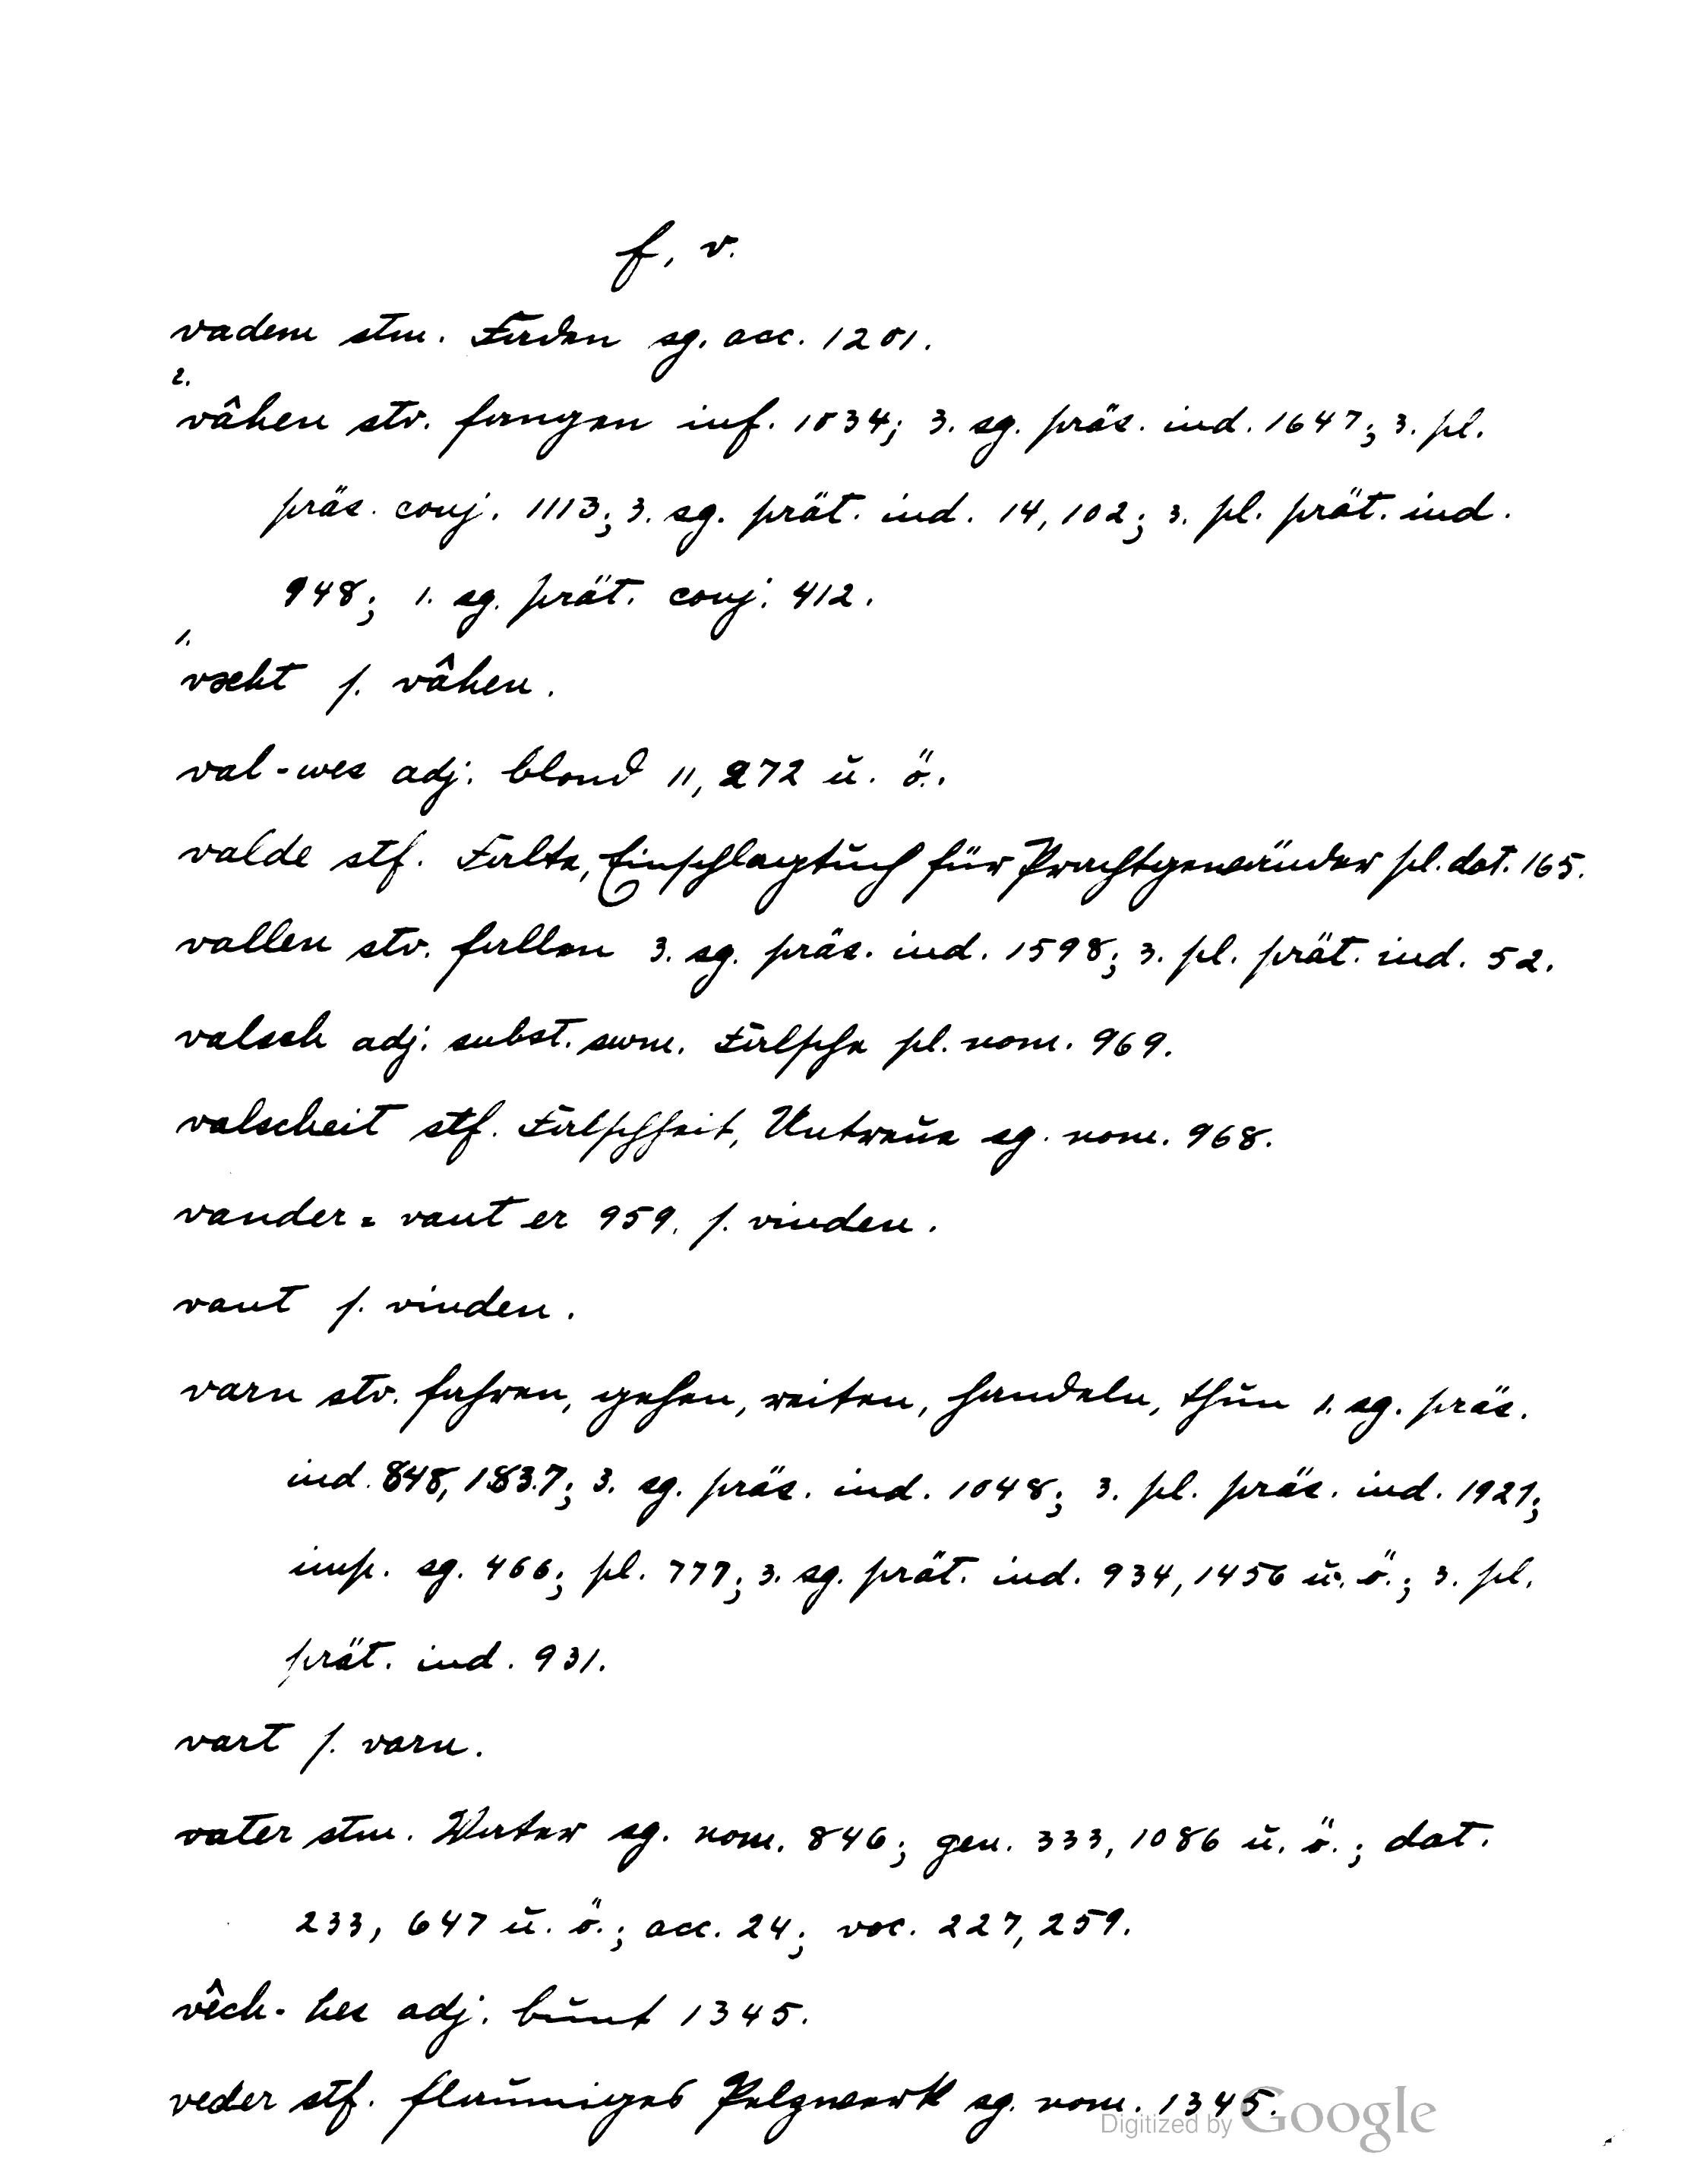 f, v.
vadem stm. Faden sg. acc. 1201.
2.
vâhen stv. fangen inf. 1034; 3. sg. präs. ind. 1647; 3. pl.
präs. conj. 1113; 3. sg. prät. ind. 14, 102; 3. pl. prät. ind.
948; 1. sg. prät. conj. 412.
1.
væht s. vâhen.
val-wes adj. blond 11, 272 u. ö..
valde stf. Falte, Einschlagtuch für Prachtgewänder pl. dat. 165.
vallen stv. fallen 3. sg. präs. ind. 1598; 3. pl. prät. ind. 52.
valsch adj. subst. swm. Falsche pl. nom. 969.
valscheit stf. Falschheit, Untreue sg. nom. 968.
vander = vant er 959. s. vinden.
vant s. vinden.
varn stv. fahren, gehen, reiten, handeln, thun 1. sg. präs.
ind. 848, 1837; 3. sg. präs. ind. 1048; 3. pl. präs. ind. 1921;
imp. sg. 466; pl. 777; 3. sg. prät. ind. 934, 1456 u. ö.; 3. pl.
prät. ind. 931.
vart s. varn.
vater stm. Vater sg. nom. 846; gen. 333, 1086 u. ö.; dat.
233, 647 u. ö.; acc. 24; voc. 227, 259.
vêch-hes adj. bunt 1345.
veder stf. flaumiges Pelzwerk sg. nom. 1345.
Digitized by Google